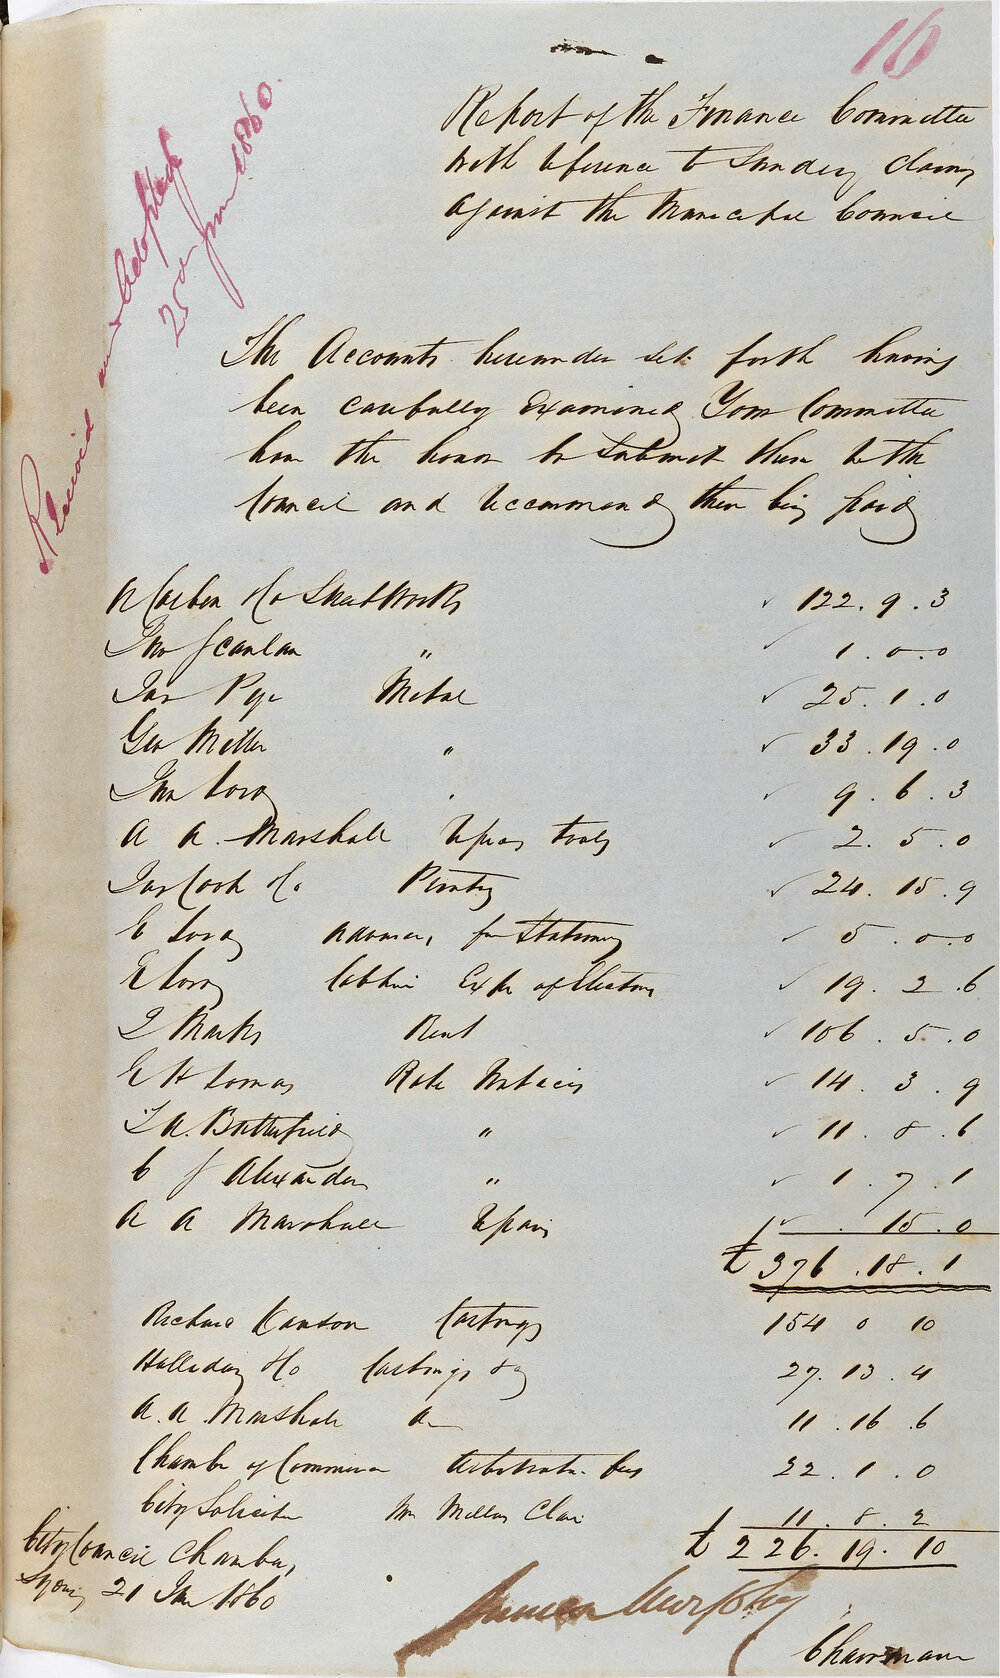 16
Report of the Finance Committee
with reference to Sundry Claims
against the Municipal Council
Received and Adopted
25th June 1860.
The Accounts hereunder set forth having
been carefully Examined Your Committee
have the honor to Submit them to the
Council and recommend their being paid
& Co Street Works ✓ 122 . 9 . 3
Jno Scanlan " ✓ 1 . 0 . 0
Jas Pye Metal ✓ 25 . 1 . 0
Geo Miller " ✓ 33 . 19 . 0
Jno " ✓ 9 . 6 . 3
A A. Marshall repairs tools ✓ 2 . 5 . 0
Jas Cook & Co Printing ✓ 24 . 15 . 9
E advance for Stationery ✓ 5 . 0 . 0
E Expr of Elections ✓ 19 . 2 . 6
Marks Rent ✓ 106 . 5 . 0
E H Lomas Rate Notices ✓ 14 . 3 . 9
A. Butterfield " ✓ 11 . 8 . 6
C J Alexander " ✓ 1 . 7 . 1
A A Marshall repairs ✓ . 15 . 0
£ 376 . 18 . 1
Richard Dawson Castings 154 0 10
Halliday & Co Castings &c 27 . 13 . 4
A. A. Marshall 11 . 16 . 6
Chamber of Commerce Arbitratn. fees 22 . 1 . 0
City Solicitor Claim 11 . 8 . 2
£ 226 . 19 . 10
City Council Chamber,
Sydney 21 1860
James Murphy
Chairman